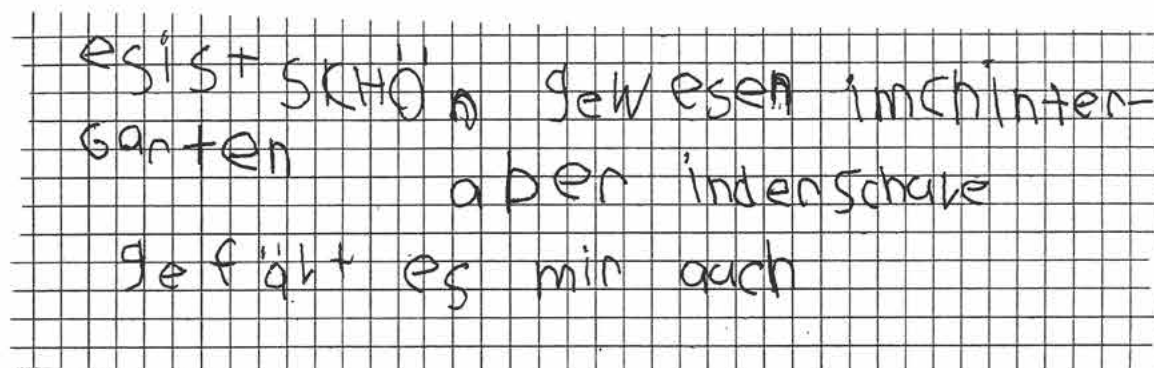 esist SCHÖn gewesen imchinter-
Garten aber inderSchule
gefält es mir auch